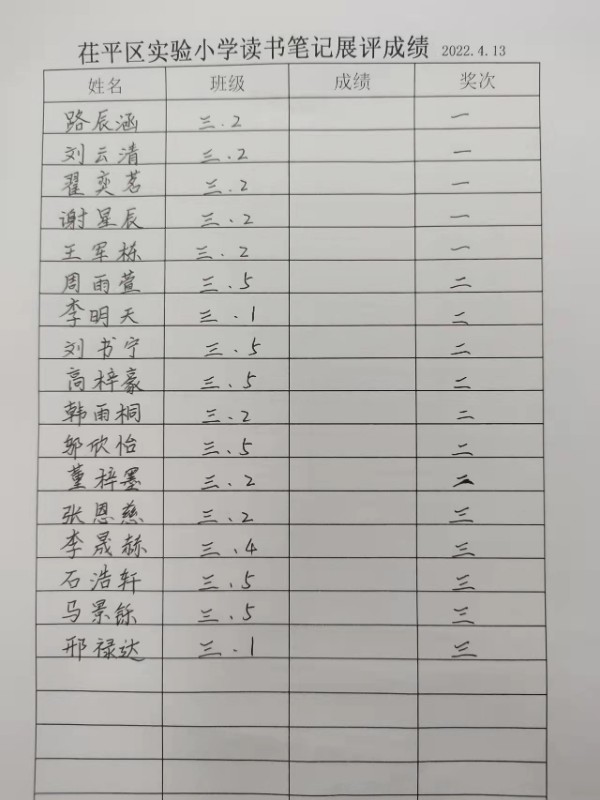 茌平区实验小学读书笔记展评成绩 2022.4.13
姓名 班级 成绩 奖次
路辰涵 三.2 一
刘云清 三.2 一
翟奕茗 三.2 一
谢星辰 三.2 一
王军栋 三.2 一
周雨萱 三.5 二
李明天 三.1 二
刘书宁 三.5 二
高梓豪 三.5 二
韩雨桐 三.2 二
邬欣怡 三.5 二
董梓墨 三.2 二
张恩慈 三.2 三
李晟赫 三.4 三
石浩轩 三.5 三
马景铄 三.5 三
邢禄达 三.1 三